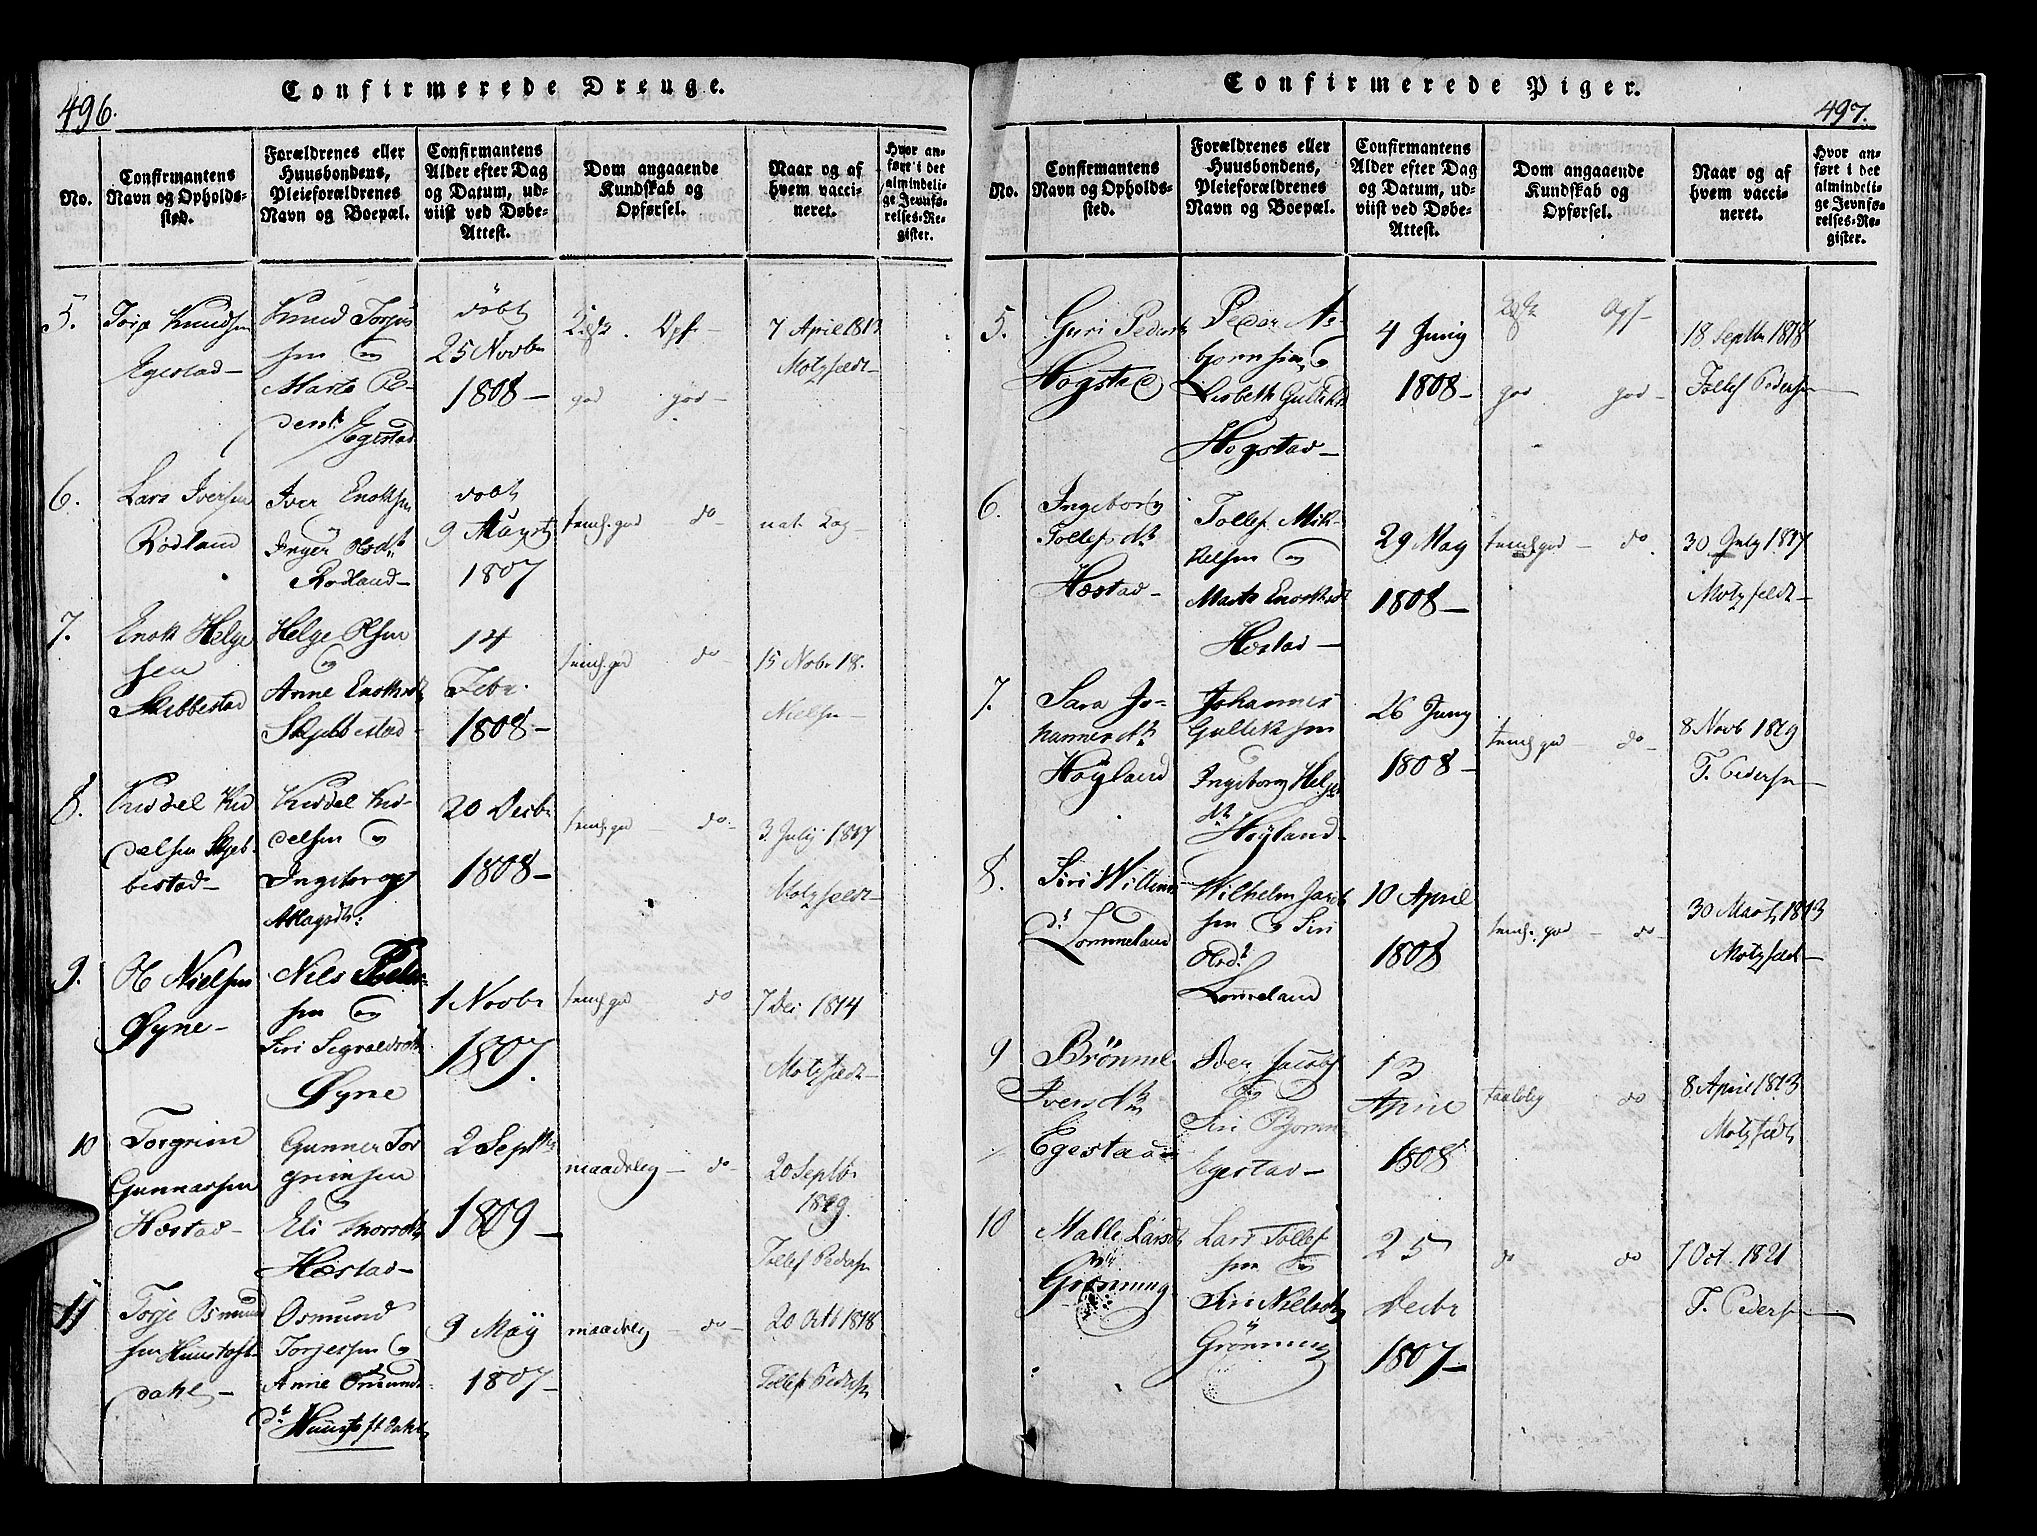 496.
Confirmerede Drenge.
No.
Confirmantens
Navn og Opholds-
sted.
Forældrenes eller
Huusbondens,
Pleieforældrenes
Navn og Boepæl.
Confirmantens
Alder efter Dag
og Datum, ud-
viist ved Døbe-
Attest.
Dom angaaende
Kundskab og
Opførsel.
Naar og af
hvem vacci-
neret.
Hvor an-
ført i det
almindeli-
ge Jevnfø-
relses-Re-
gister.
5.
Torje Knudsen
Egestad-
Knud Torjes
sen og
Marta Pe-
dersdr
Egestad
døbt
25 Novbr
1808-
Opf-
god god-
7 April 1812
Motzfeldt-
6.
Lars Iversen
Rodland
Iver Enoksen
Inger
Rodland-
døbt
9 August
1807
teml. god do-
nat. Kop-
7.
Enok Helge
sen
Skebbestad
Helge Olsen
og
Anne Enoksdr
Skjebbestad-
14
Febr.
1808-
teml. god do-
15 Nobr 18.
Nielsen-
8.
Kiddel Kid
delsen Skjeb-
bestad-
Kiddel Kid-
delsen og
Ingeborg
Aslagsdr:
20 Decbr
1808-
teml. god do-
3 July 1817
Motzfeldt-
9.
Ol Nielsen
Øyne-
Niels Peder-
sen og
Siri
Øyne
1 Novbr
1807.
teml. god do
7 Dec 1814
Motzfeldt-
10
Torgrim
Gunnarsen
Hæstad-
Gunner Tor
grimsen
Eli
Hæstad-
2 Septbr
1809-
maadeleg- do-
20 Septbr
1819.
Tollef Peders
11
Torje Osmund
sen
dahl-
Osmund
Torjessen og
Anne Osmunds
dr
9 May
1807-
maadeleg- do-
20 Octb 1818
Tollef Peders
Confirmerede Piger.
497.
No.
Confirmantens
Navn og Opholds-
sted.
Forældrenes eller
Huusbondens,
Pleieforældrenes
Navn og Boepæl.
Confirmantens
Alder efter Dag
og Datum, ud-
viist ved Døbe-
Attest.
Dom angaaende
Kundskab og
Opførsel.
Naar og af
hvem vacci-
neret.
Hvor an-
ført i det
almindeli-
ge Jevnfø-
relses-Re-
gister.
5.
Guri Pedersdr
Hogstad
Peder As-
bjornsen og
Lisbeth Gulleksdr
Hogstad-
4 Juny
1808-
Opf-
god god-
18 Septbr 1818
Tollef Pedersen
6.
Ingeborg
Tollefsdr
Hæstad-
Tollef Mik-
kelsen og
Marta Enoksdr
Hæstad-
29 May
1808-
temlig god- do.
30 July 1817
Motzfeldt-
7.
Sara Jo-
hannesdr
Høyland
Johannes
Gulleksen
Ingeborg Helges
dr
Høyland-
26 Juny
1808-
temlig god- do-
8 Novb 1819
T. Pedersen
8.
Siri Willums
dr
Lommeland
Wilhelm Jacob
sen og Siri
Olsdr
Lomeland
10 April
1808
temlig. god- do-
30 Marts 1813
Motzfeldt-
9
Brønnel
Iversdr
Egestad
Iver Jacobs
Siri
Egestad-
13
April
1808
taalelig do
8 April 1813
Motzfeldt
10
Malle Larsdr
Grønning
Lars Tollef
sen og
Siri Nielsdr
Grønning
25
Decbr
1807-
do do
7 Oct. 1821
T. Pedersen